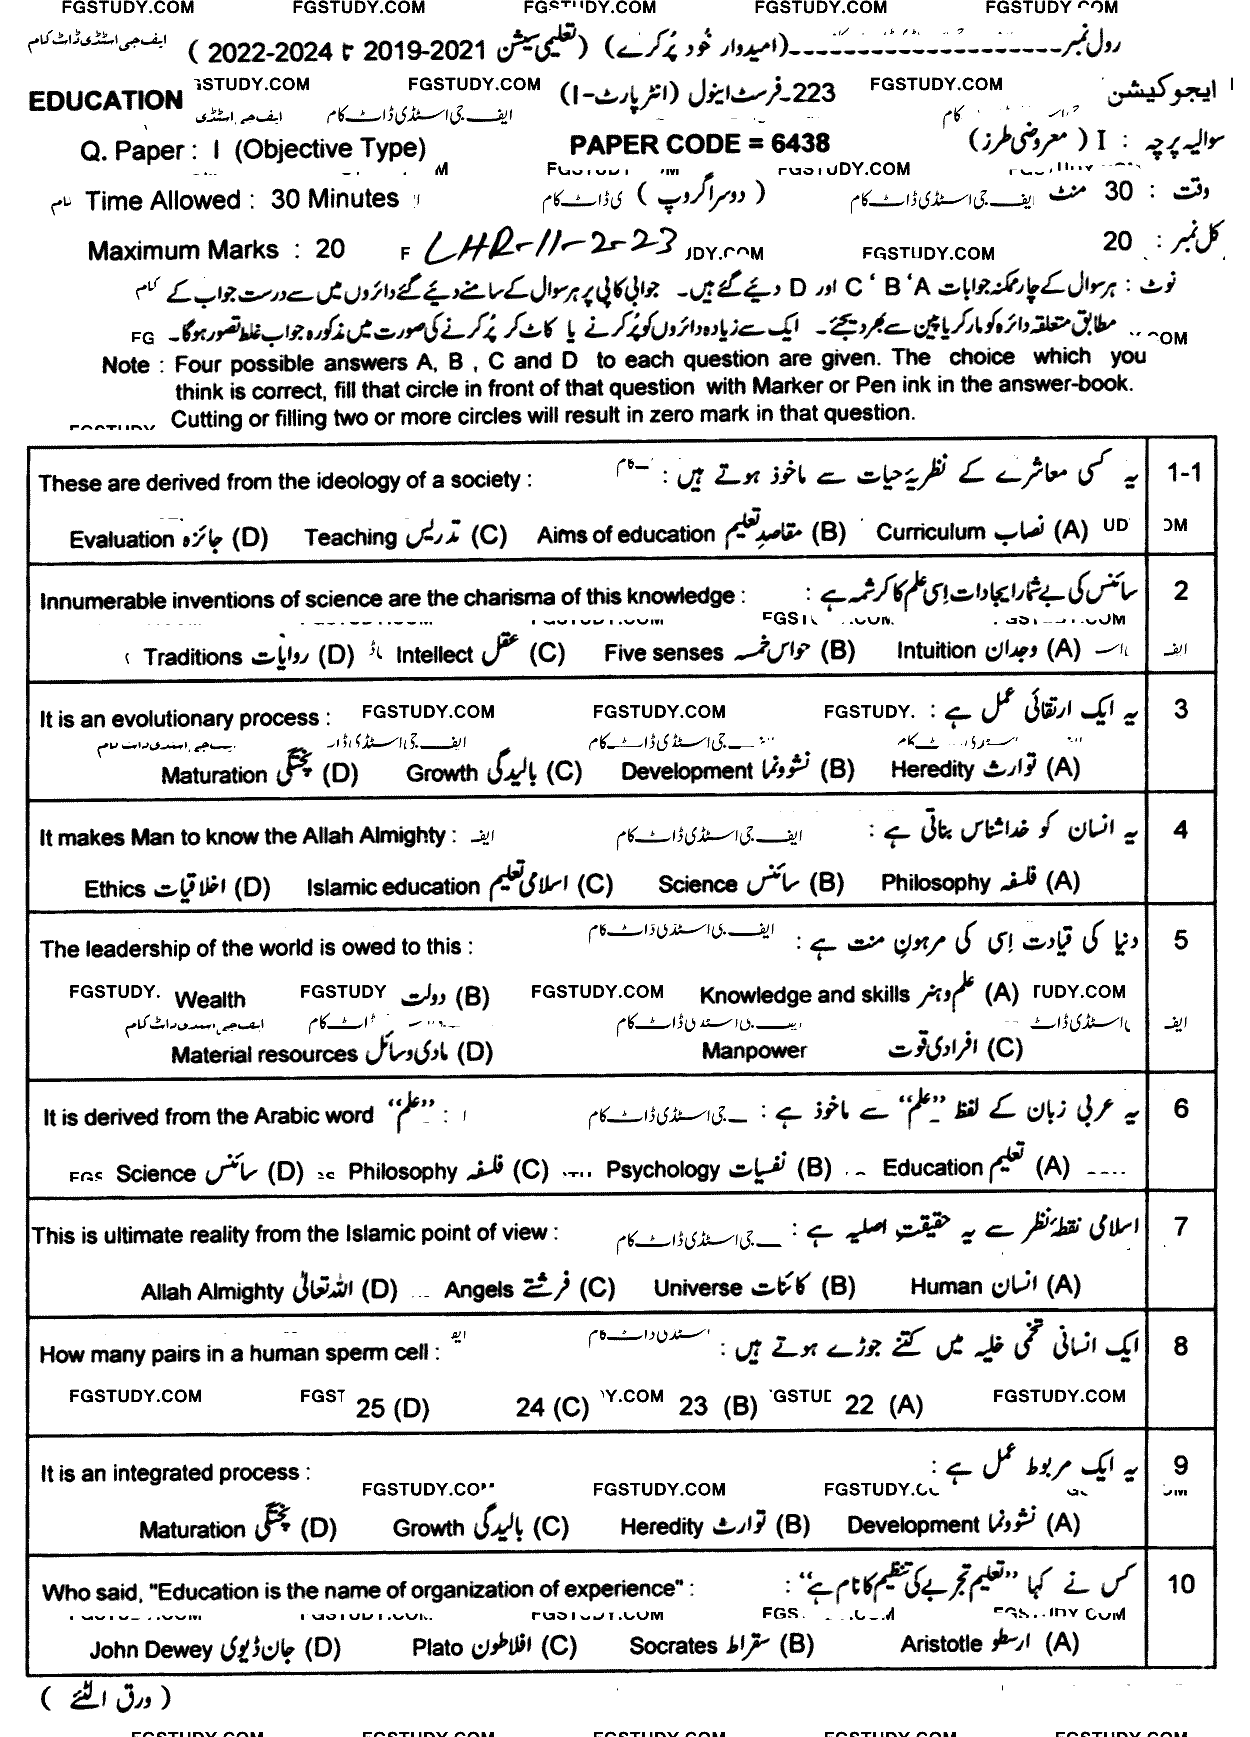 FGSTUDY.COM FGSTUDY.COM FGSTUDY.COM FGSTUDY.COM
رول نمبر (امیدوار خود پُر کرے) (تعلیمی سیشن 2021-2019 تا 2024-2022) ایف جی اسٹڈی ڈاٹ کام
STUDY.COM FGSTUDY.COM FGSTUDY.COM
ایجوکیشن 223-فرسٹ اینول (انٹر پارٹ-I) EDUCATION
سوالیہ پرچہ : I (معروضی طرز) PAPER CODE = 6438 Q. Paper : I (Objective Type)
وقت : 30 منٹ (دوسرا گروپ) Time Allowed : 30 Minutes
کل نمبر : 20 LHR-11-2-23 Maximum Marks : 20
FGSTUDY.COM
نوٹ : ہر سوال کے چار ممکنہ جوابات A، B، C اور D دیئے گئے ہیں۔ جوابی کاپی پر ہر سوال کے سامنے دیئے گئے دائروں میں سے درست جواب کے
مطابق متعلقہ دائرہ کو مارکر یا پین سے بھر دیجئے۔ ایک سے زیادہ دائروں کو پُر کرنے یا کاٹ کر پُر کرنے کی صورت میں مذکورہ جواب غلط تصور ہوگا۔
Note : Four possible answers A, B , C and D to each question are given. The choice which you
think is correct, fill that circle in front of that question with Marker or Pen ink in the answer-book.
Cutting or filling two or more circles will result in zero mark in that question.
1-1 یہ کسی معاشرے کے نظریۂ حیات سے ماخوذ ہوتے ہیں : These are derived from the ideology of a society :
(A) نصاب Curriculum (B) مقاصدِ تعلیم Aims of education (C) تدریس Teaching (D) جائزہ Evaluation
2 سائنس کی بے شمار ایجادات اِسی علم کا کرشمہ ہے : Innumerable inventions of science are the charisma of this knowledge :
(A) وجدان Intuition (B) حواس خمسہ Five senses (C) عقل Intellect (D) روایات Traditions
3 یہ ایک ارتقائی عمل ہے : It is an evolutionary process :
FGSTUDY.COM FGSTUDY.COM FGSTUDY.
(A) توارث Heredity (B) نشوونما Development (C) بالیدگی Growth (D) پختگی Maturation
4 یہ انسان کو خدا شناس بناتی ہے : It makes Man to know the Allah Almighty :
ایف جی اسٹڈی ڈاٹ کام
(A) فلسفہ Philosophy (B) سائنس Science (C) اسلامی تعلیم Islamic education (D) اخلاقیات Ethics
5 دنیا کی قیادت اِسی کی مرہونِ منت ہے : The leadership of the world is owed to this :
ایف جی اسٹڈی ڈاٹ کام
(A) علم و ہنر Knowledge and skills (B) دولت Wealth
FGSTUDY. FGSTUDY FGSTUDY.COM TUDY.COM
(C) افرادی قوت Manpower (D) مادی وسائل Material resources
6 یہ عربی زبان کے لفظ "علم" سے ماخوذ ہے : It is derived from the Arabic word "علم" :
(A) تعلیم Education (B) نفسیات Psychology (C) فلسفہ Philosophy (D) سائنس Science
7 اسلامی نقطۂ نظر سے یہ حقیقتِ اصلیہ ہے : This is ultimate reality from the Islamic point of view :
(A) انسان Human (B) کائنات Universe (C) فرشتے Angels (D) اللہ تعالیٰ Allah Almighty
8 ایک انسانی تخمی خلیہ میں کتنے جوڑے ہوتے ہیں : How many pairs in a human sperm cell :
(A) 22 (B) 23 (C) 24 (D) 25
FGSTUDY.COM FGSTUDY.COM
9 یہ ایک مربوط عمل ہے : It is an integrated process :
FGSTUDY.COM
(A) نشوونما Development (B) توارث Heredity (C) بالیدگی Growth (D) پختگی Maturation
10 کس نے کہا "تعلیم تجربے کی تنظیم کا نام ہے" : Who said, "Education is the name of organization of experience" :
(A) ارسطو Aristotle (B) سقراط Socrates (C) افلاطون Plato (D) جان ڈیوی John Dewey
(ورق الٹئے)
FGSTUDY.COM FGSTUDY.COM FGSTUDY.COM FGSTUDY.COM FGSTUDY.COM